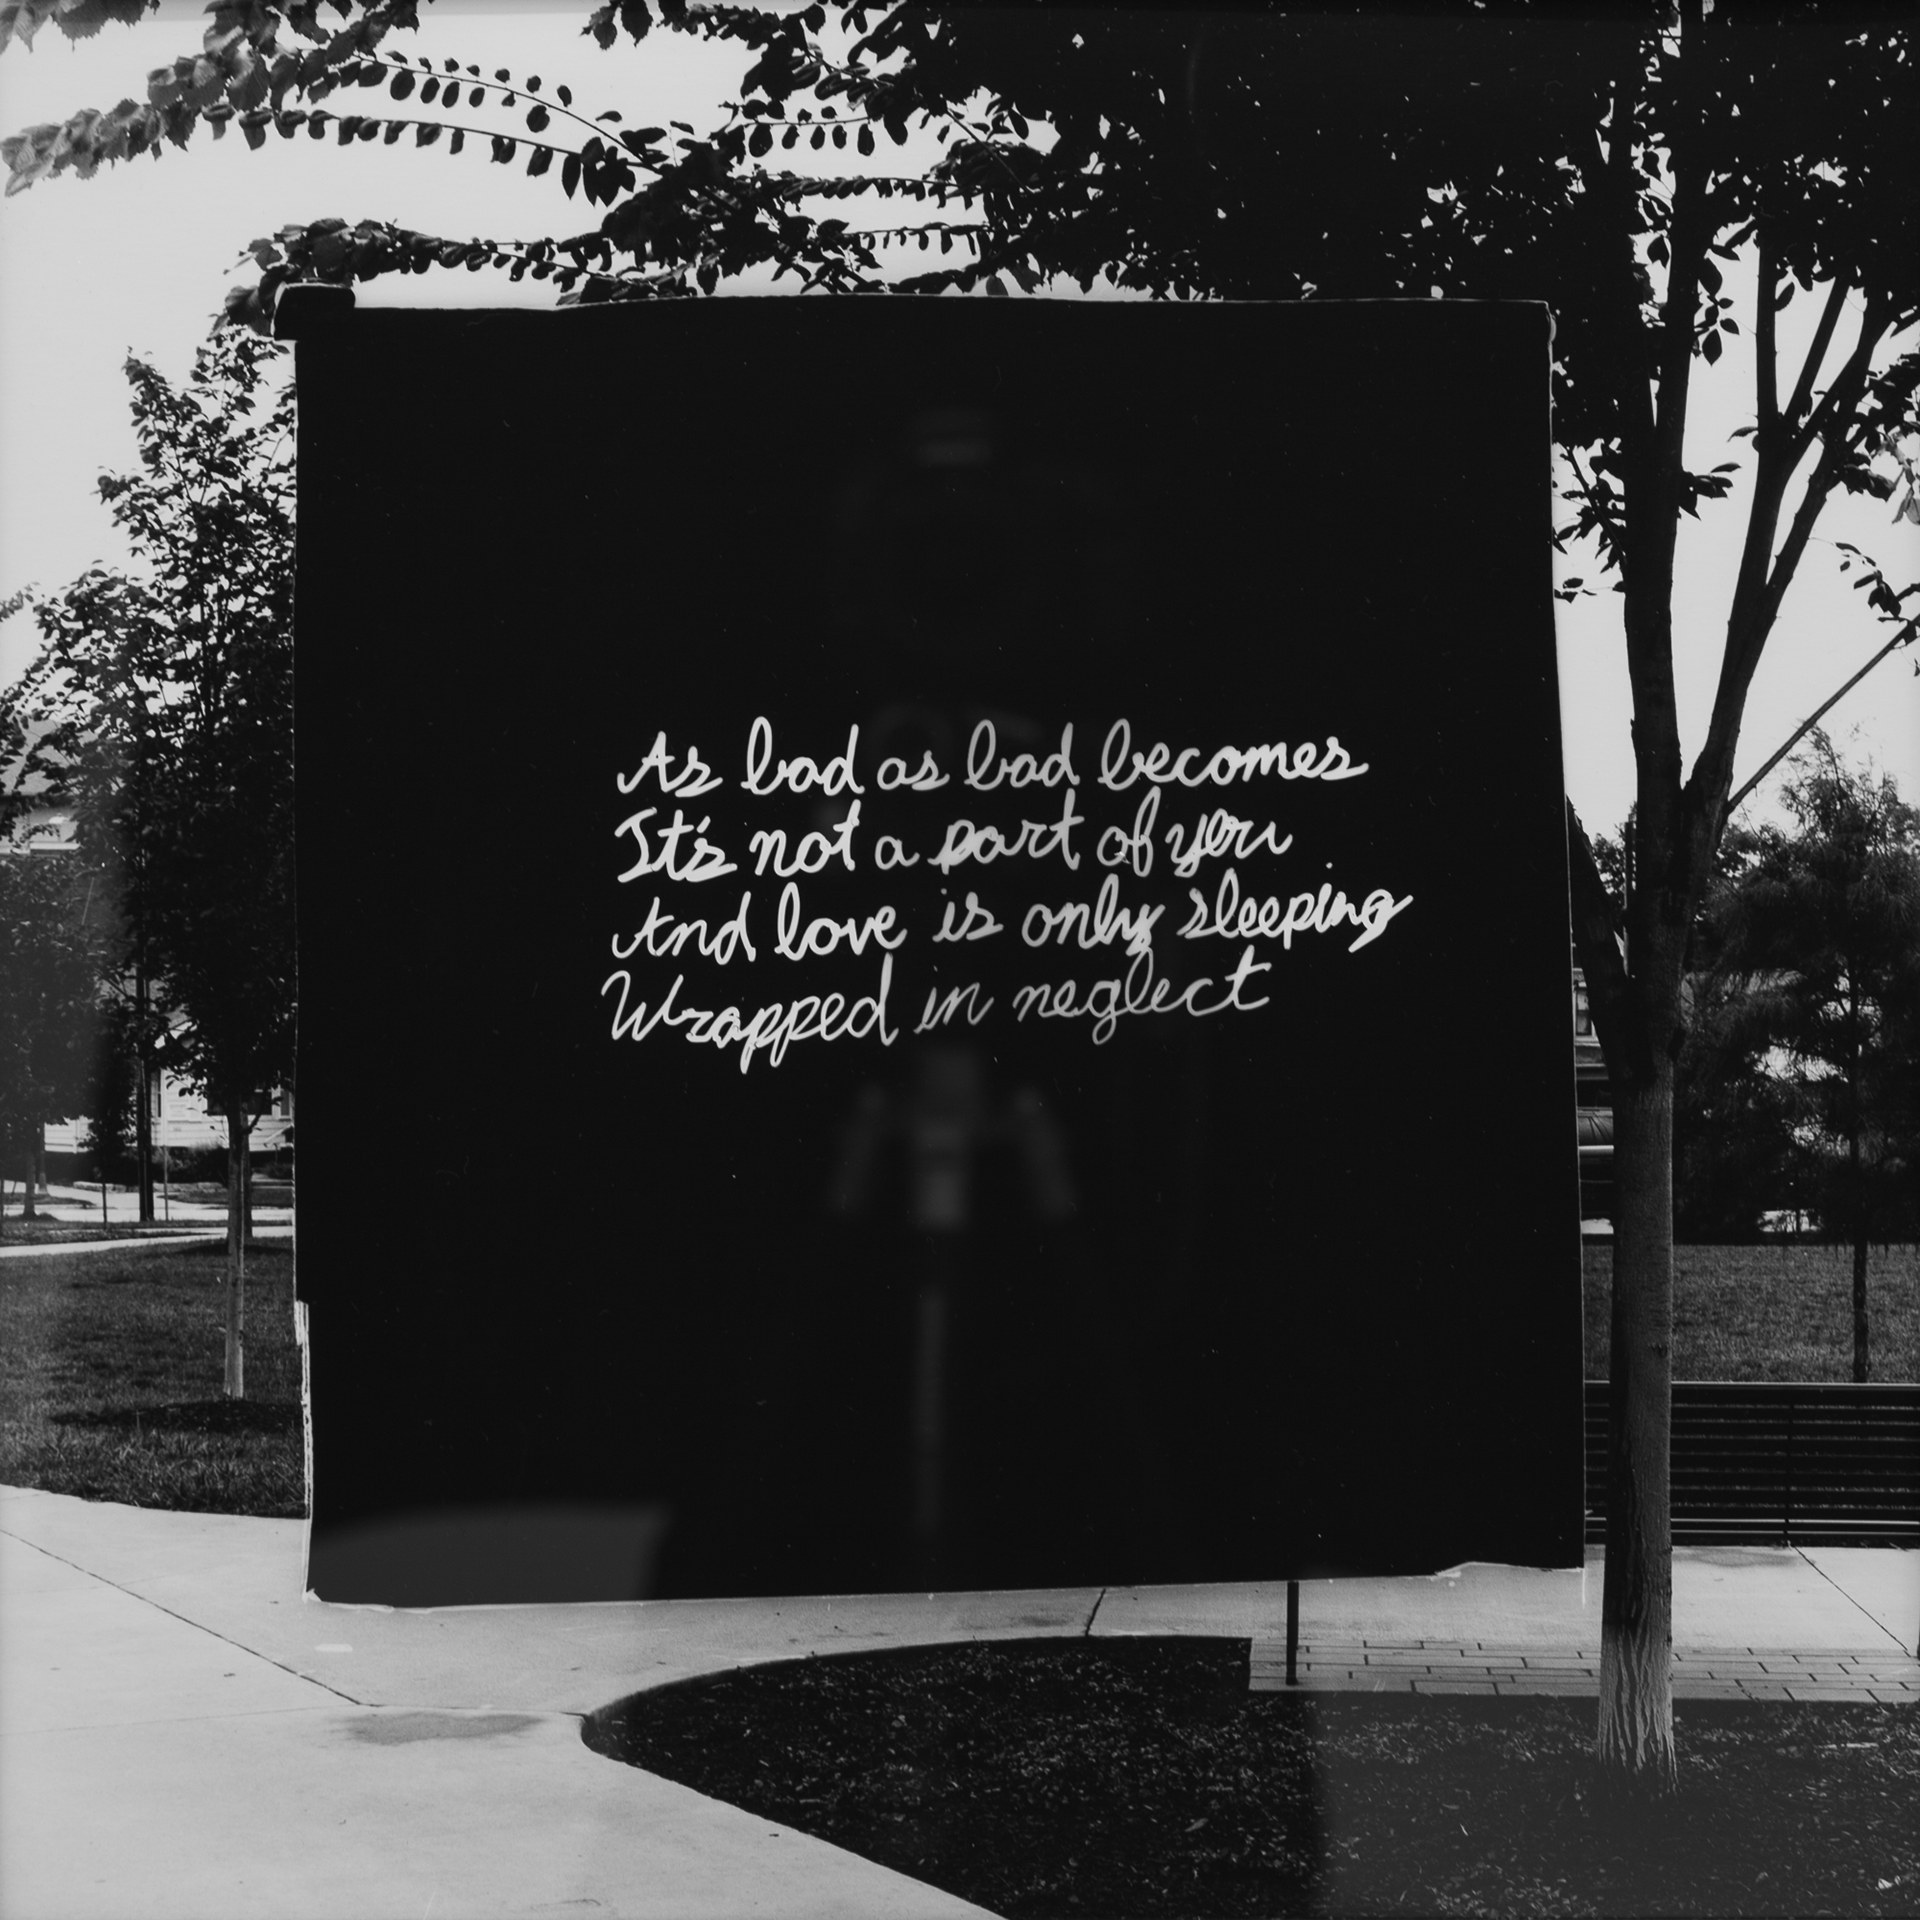 As bad as bad becomes
It's not a part of you
And love is only sleeping
Wrapped in neglect